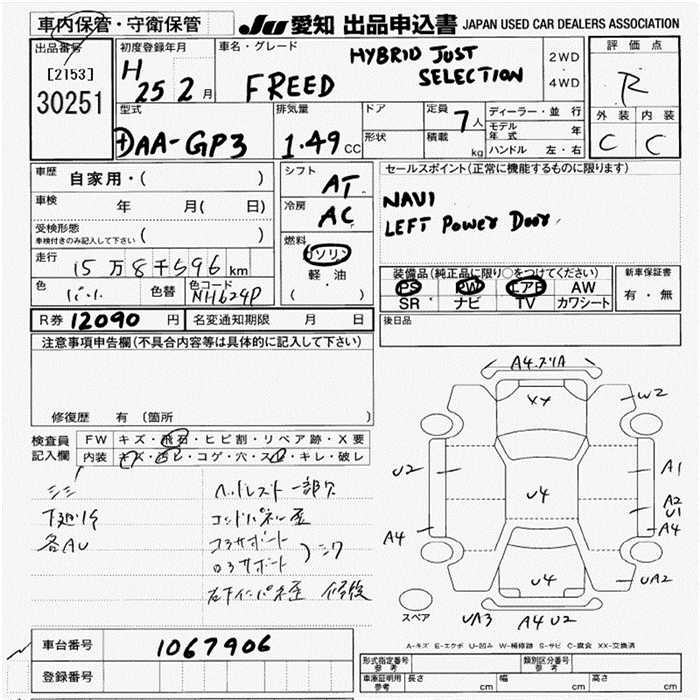 車内保管・守衛保管
JU 愛知 出品申込書 JAPAN USED CAR DEALERS ASSOCIATION
出品番号
[2153]
30251
初度登録年月
H 25 2 月
車名・グレード
FREED
HYBRID JUST
SELECTION
2WD
4WD
評価点
R
外装 内装
C C
型式
DAA-GP3
排気量
1.49 CC
ドア
形状
定員 7 人
積載 kg
ディーラー・並行
モデル年式 年
ハンドル 左・右
車歴 自家用・( )
車検 年 月( 日)
受検形態
車検付きのみ記入して下さい ( )
走行 15万8千596 km
色
色替
色コード NH624P
シフト AT
冷房 AC
燃料
ガソリン
軽油
( ・ )
セールスポイント(正常に機能するものに限ります)
NAVI
LEFT Power Door
装備品(純正品に限り○をつけてください)
PS PW エアB AW
SR ナビ TV カワシート
新車保証書
有・無
R券 12090 円 名変通知期限 月 日
後日品
注意事項申告欄(不具合内容等は具体的に記入して下さい)
修復歴 有 (箇所
検査員記入欄
FW キズ・飛石・ヒビ割・リペア跡・X要
内装 キズ・ヨゴレ・コゲ・穴・スレ・キレ・破レ
ヘッドレスト一部欠
下廻りサ
コアサポート
各AU
A4 スリA
XX
W2
U2
A1
U4
A2
U1
A4
A4
U4
UA2
スペア
UA3
A4 U2
A-キズ E-エクボ U-凹み W-補修跡 S-サビ C-腐食 XX-交換済
車台番号 1067906
登録番号
形式指定番号 参考
類別区分番号 参考
車庫証明用 参考 長さ cm 幅 cm 高さ cm